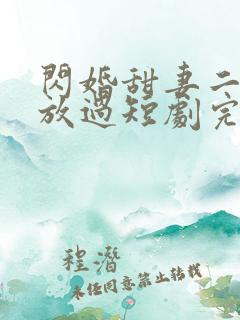 閃婚甜妻二
放過短劇完
程潛
未任同意禁止转载